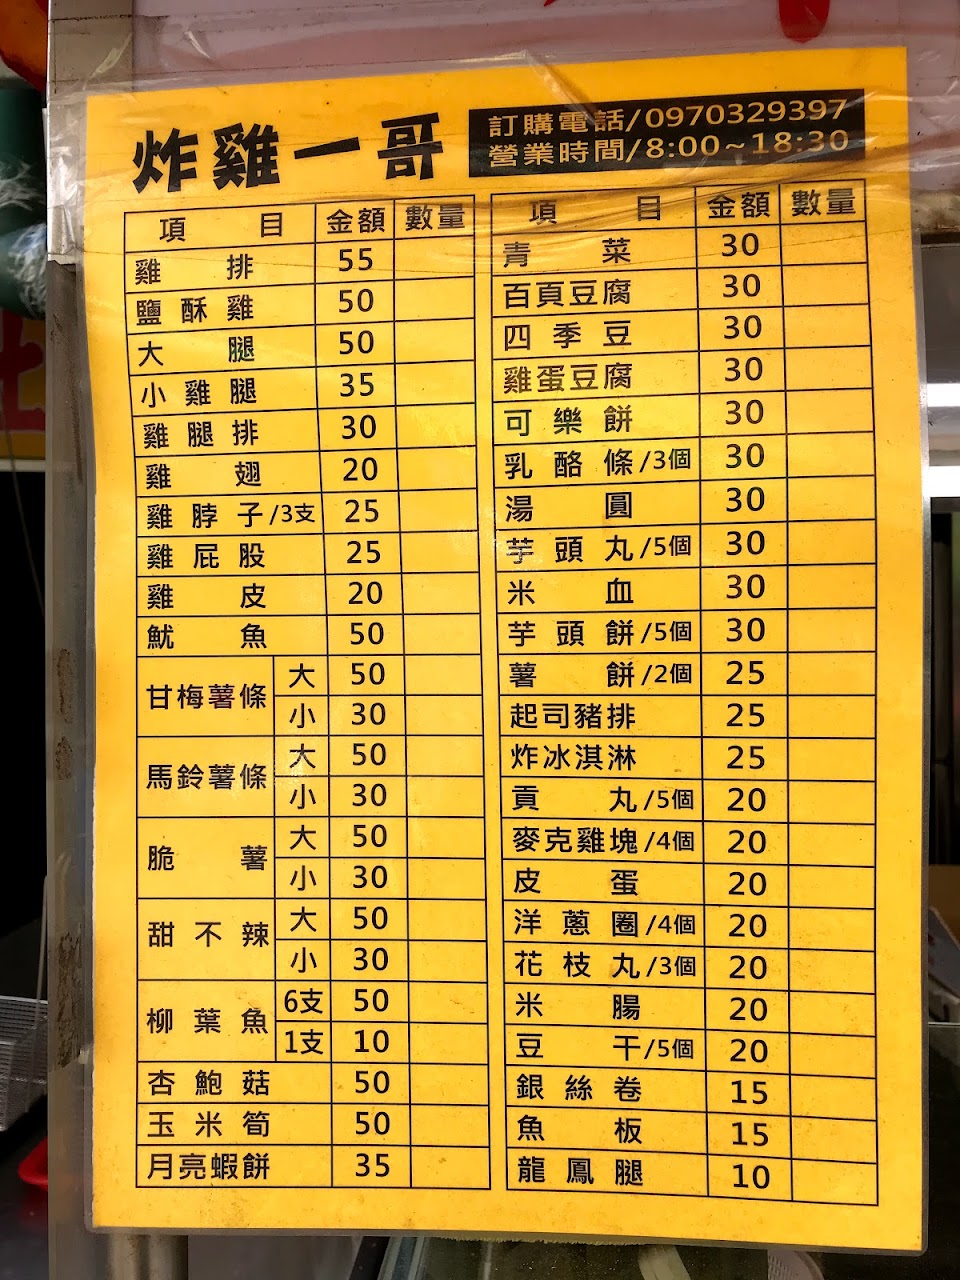 炸雞一哥
訂購電話/0970329397
營業時間/8:00~18:30
項目 金額 數量
雞排 55
鹽酥雞 50
大腿 50
小雞腿 35
雞腿排 30
雞翅 20
雞脖子/3支 25
雞屁股 25
雞皮 20
魷魚 50
甘梅薯條 大 50
小 30
馬鈴薯條 大 50
小 30
脆薯 大 50
小 30
甜不辣 大 50
小 30
柳葉魚 6支 50
1支 10
杏鮑菇 50
玉米筍 50
月亮蝦餅 35
項目 金額 數量
青菜 30
百頁豆腐 30
四季豆 30
雞蛋豆腐 30
可樂餅 30
乳酪條/3個 30
湯圓 30
芋頭丸/5個 30
米血 30
芋頭餅/5個 30
薯餅/2個 25
起司豬排 25
炸冰淇淋 25
貢丸/5個 20
麥克雞塊/4個 20
皮蛋 20
洋蔥圈/4個 20
花枝丸/3個 20
米腸 20
豆干/5個 20
銀絲卷 15
魚板 15
龍鳳腿 10